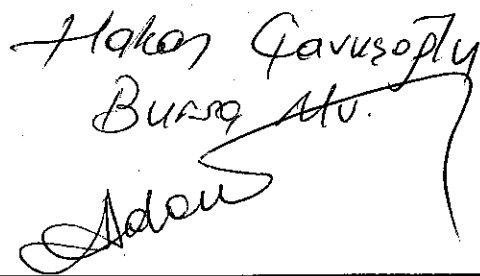 Hakan Çavuşoğlu
Bursa Mv.